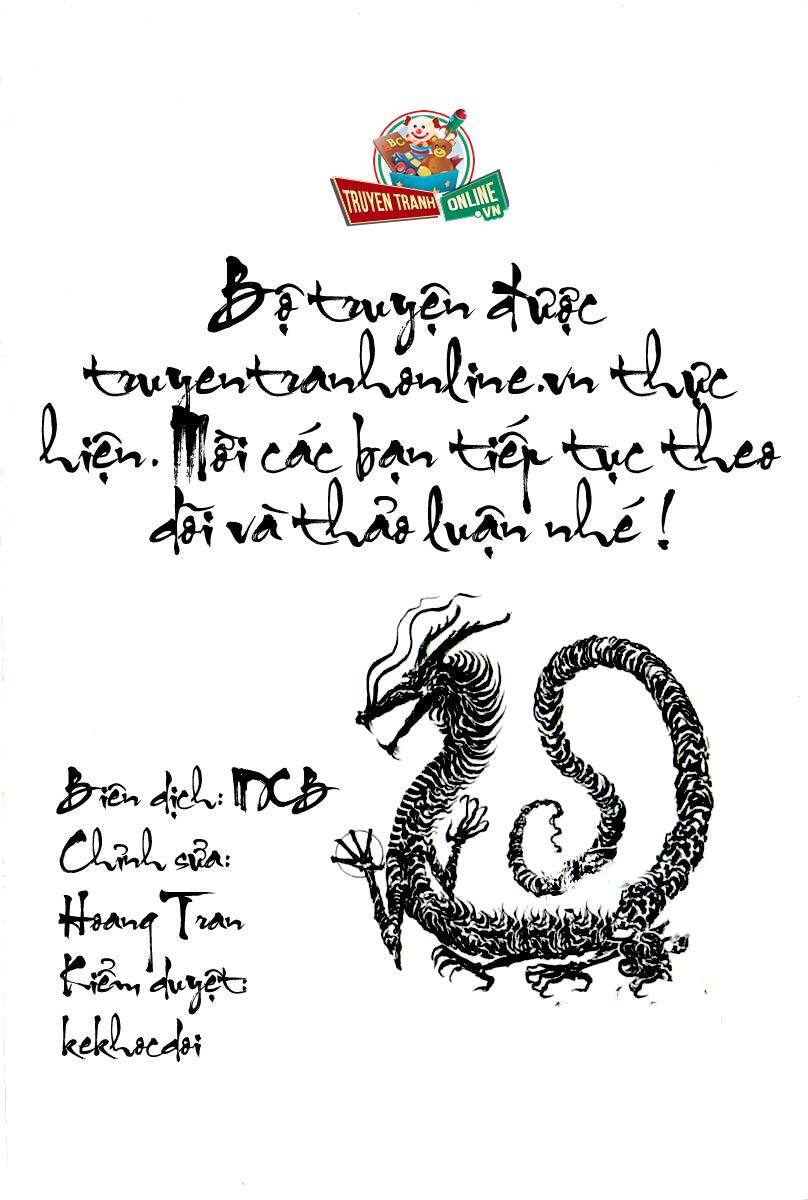 ABC
TRUYEN TRANH
ONLINE
.VN
Bộ truyện được
truyentranhonline.vn thực
hiện. Mời các bạn tiếp tục theo
dõi và thảo luận nhé!
Biên dịch: NCB
Chỉnh sửa:
Hoang Tran
Kiểm duyệt:
kekhocdoi